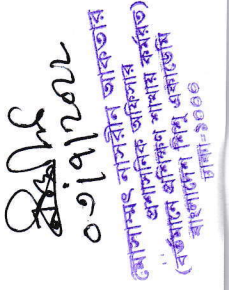 ০৩/৭/২০২২
মোসাম্মৎ নাসরীন আকতার
প্রশাসনিক অফিসার
(বর্তমানে প্রশিক্ষণ শাখায় কর্মরত)
বাংলাদেশ শিশু একাডেমি
ঢাকা-১০০০